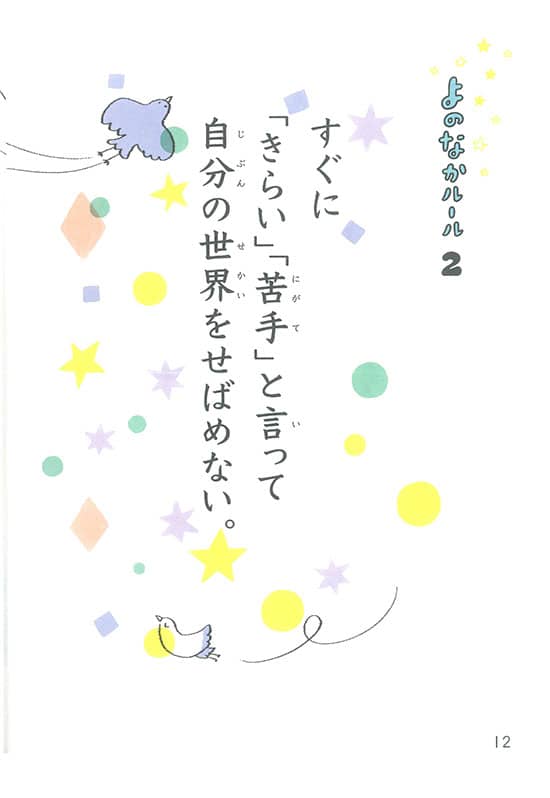 よのなかルール 2
すぐに
「きらい」「苦手」と言って
にがて
い
自分の世界をせばめない。
じぶん
せかい
12